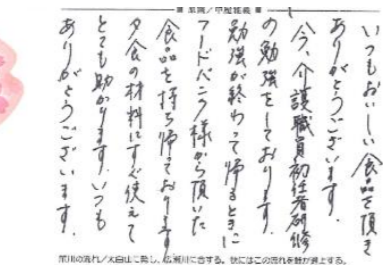 いつもおいしい食品を頂き
ありがとうございます。
今、介護職員初任者研修
の勉強をしております。
勉強が終わって帰るときに
フードバンク様から頂いた
食品を持ち帰っております
夕食の材料にすぐ使えて
とても助かります。いつも
ありがとうございます。